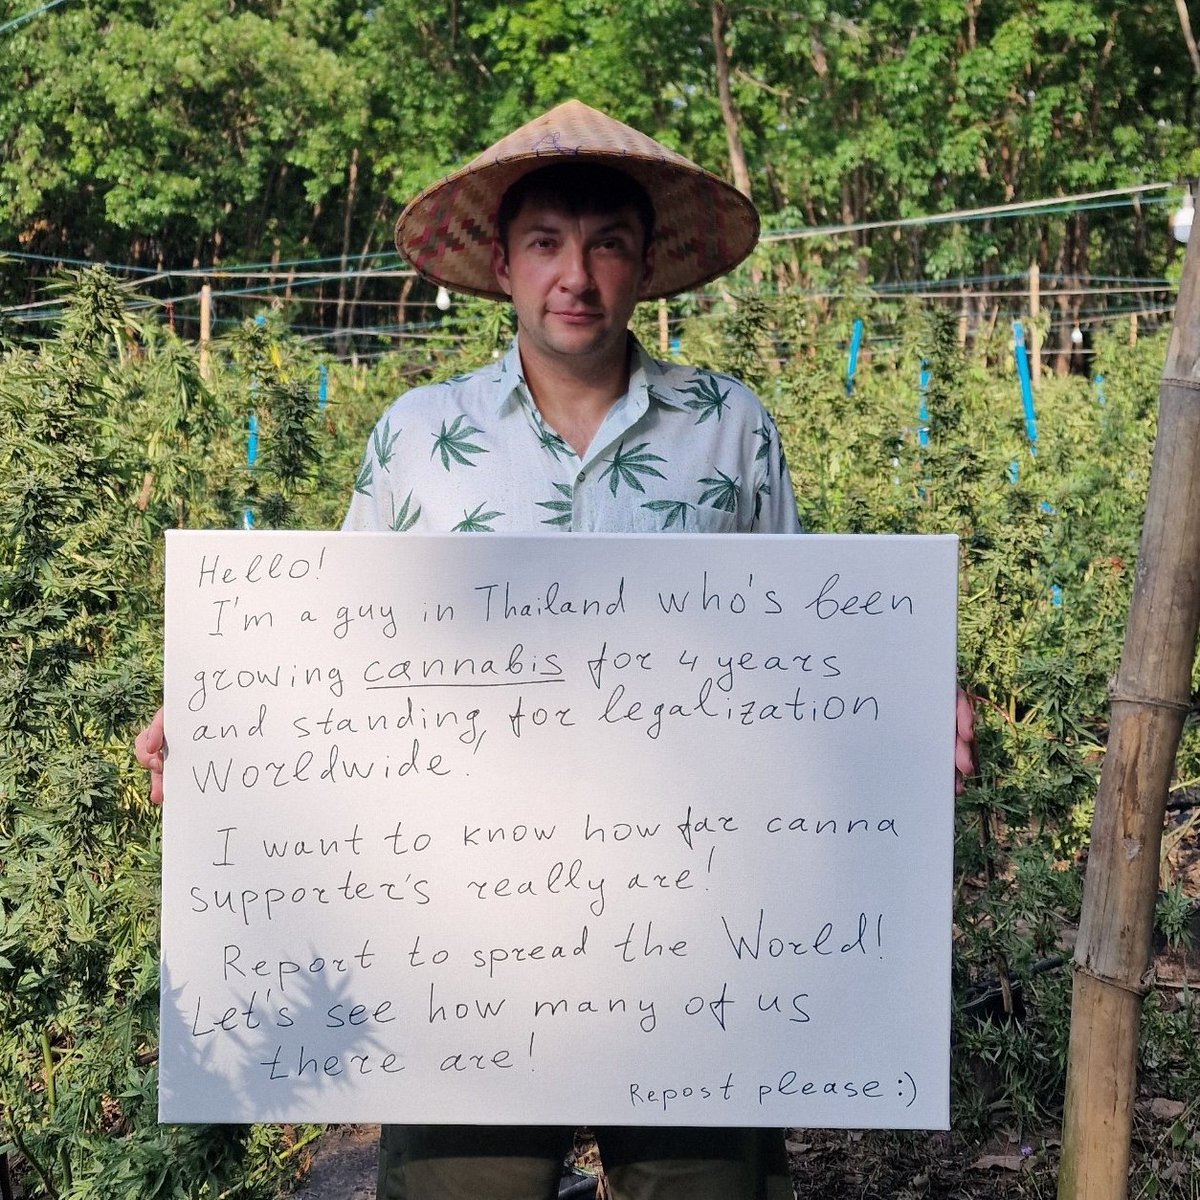 Hello!
I'm a guy in Thailand who's been
growing cannabis for 4 years
and standing, for legalization
Worldwide!
I want to know how far canna
supporter's really are!
Report to spread the World!
Let's see how many of us
there are!
Repost please :)